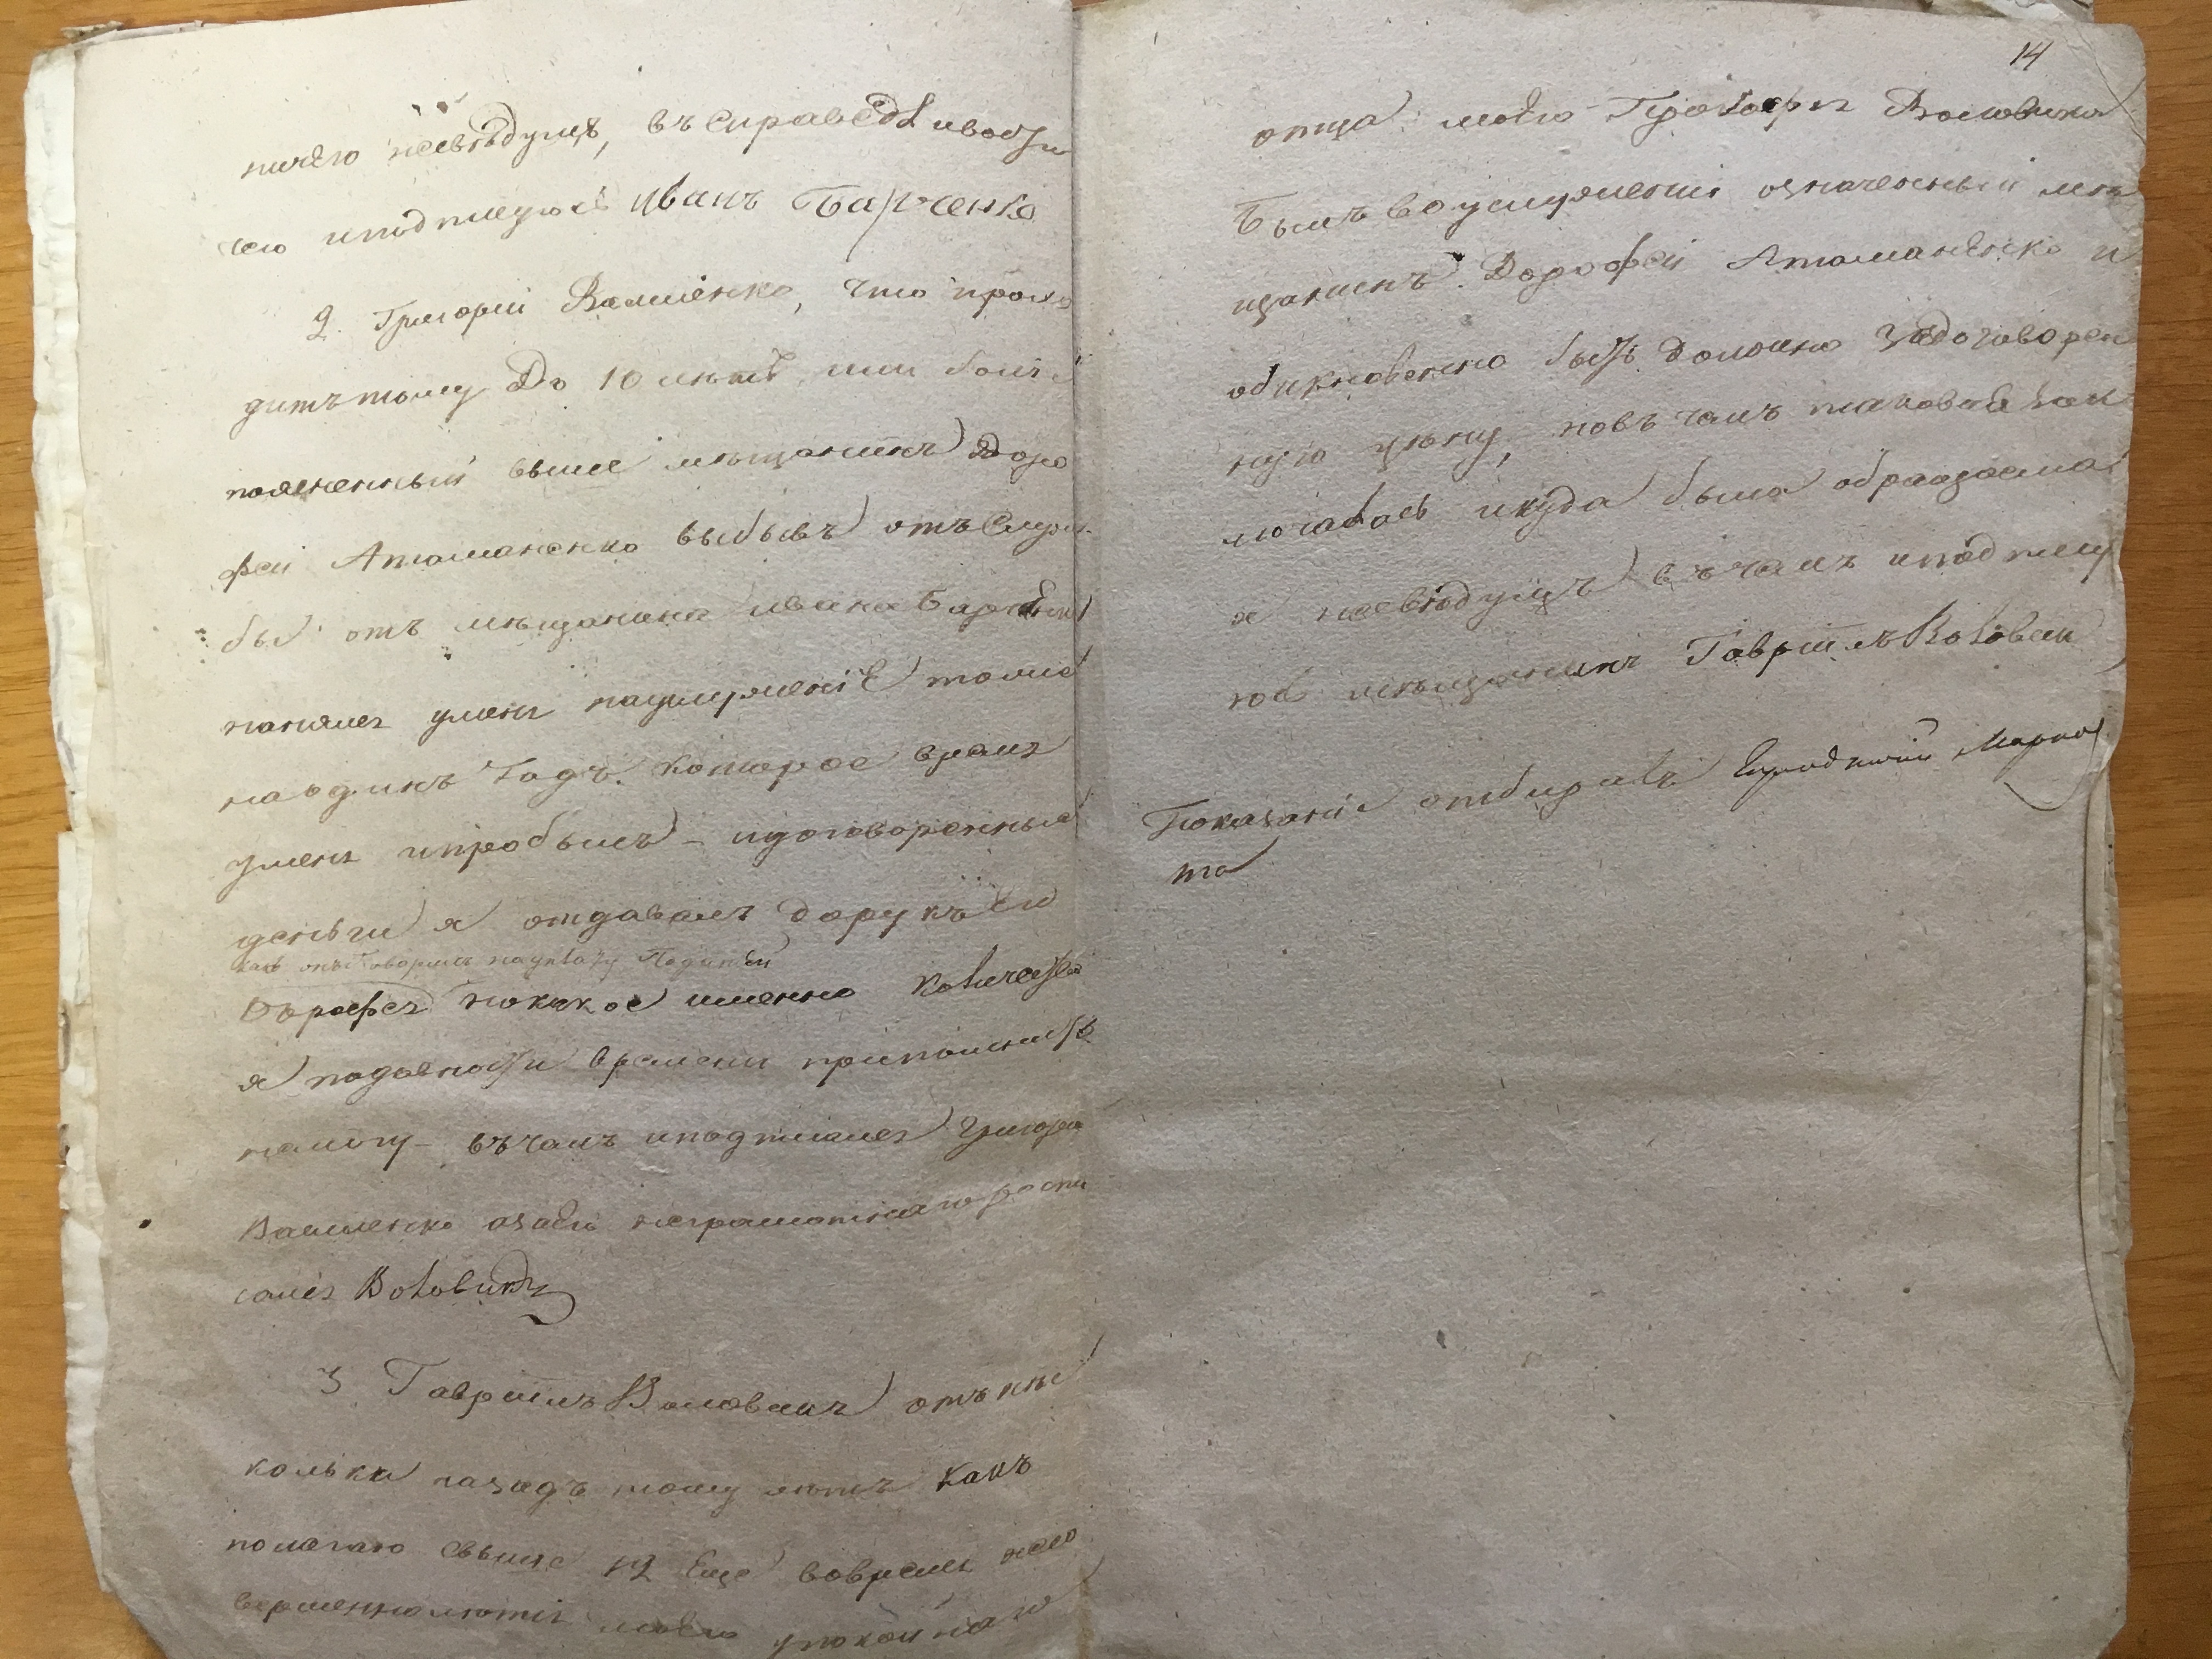 ничего неведущъ, въ справедливости
чего и подписуюсь Иванъ Барченко
2. Григорій Василенко, что прохо
дитъ тому до 10 летъ или более
поясненный выше мещанинъ Доро
фей Атоманенко выбывъ отъ служ
бы отъ мещанина Ивана Барченка
нанялся умени науслуженіе тоже
на одинъ годъ. Которое время
умени и пробылъ – и договоренныя
деньги я отдавалъ до рукъ его
какъ онъ говорилъ на уплату Податей
Дорофея но какое именно количество
я по давности времени припомнить
немогу – въ чемъ и подписался Григорій
Василенко а за его неграмотнаго роспи
сался Воловикъ
3 Гавріилъ Воловикъ отъ не
колька назадъ тому летъ какъ
полагаю свыше 12 еще вовремя несо
вершеннолетія моего упокойнаго
14
отца моего Прокофія Воловика
былъ во услуженіи означенный ме
щанинъ Дорофей Атоманенко и
обикновенно быть должно за договорен
ную цену, новъ чемъ таковая зак
лючалась и куда была обращаема
я неведущъ въ чемъ и подпису
юсь мещанинъ Гавріилъ Воловик
Показаніе отбиралъ Марко
та